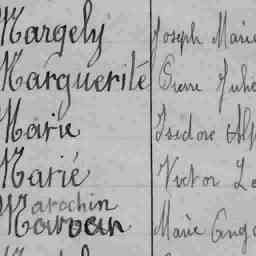 Margely Joseph Marie
Marguerite Pierre Julie
Marie Isidore Alp
Marié Victor Le
Marochin
Marie Ange